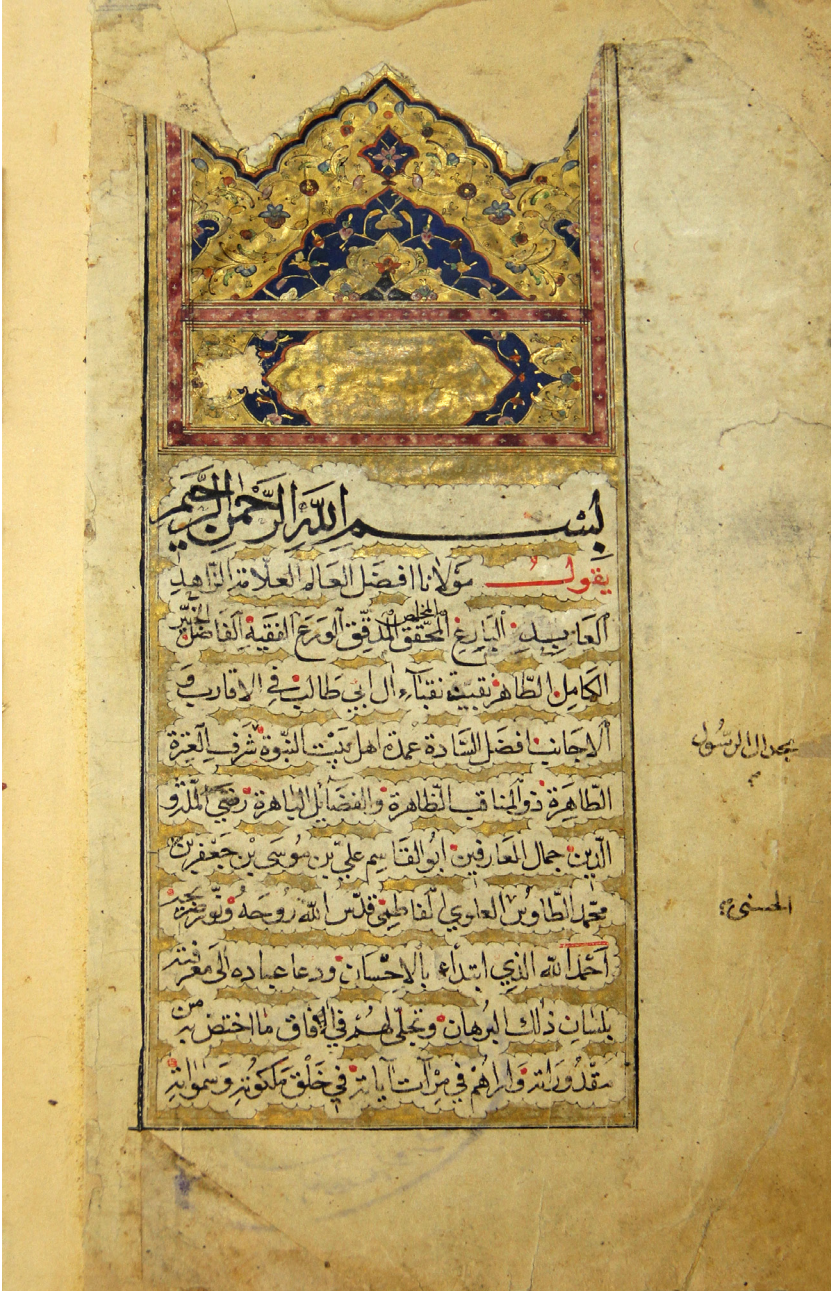 بِسْمِ اللهِ الرَّحْمٰنِ الرَّحِيمِ
يقول مولانا افضل العالم العلامة الزاهد
العابد البارع المحقق المخلص المدقق الورع الفقيه الفاضل الحبر
الكامل الطاهر نقيب نقباء ال ابي طالب في الاقارب و
الاجانب افضل السادة عمدة اهل بيت النبوة شرف العترة
الطاهرة ذو المناقب الظاهرة والفضايل الباهرة رضي الملة و
الدين جمال العارفين ابو القاسم علي بن موسى بن جعفر بن
محمد الطاوس العلوي الفاطمي قدس الله روحه ونور ضريحه
أحمد الله الذي ابتداء بالاحسان ودعا عباده الى معرفته
بلسان ذلك البرهان وتجلى لهم في الآفاق ما اختص به من
مقدوراته واراهم في مرآت آياته في خلق ملكوته وسمواته
مجد ال الرسول
الحسني